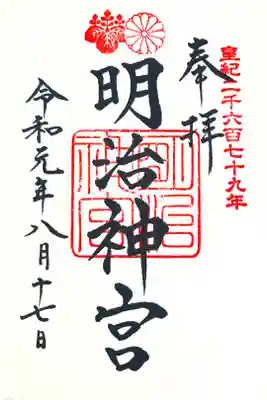 皇紀二千六百七十九年
奉拝
明治神宮
令和元年八月十七日